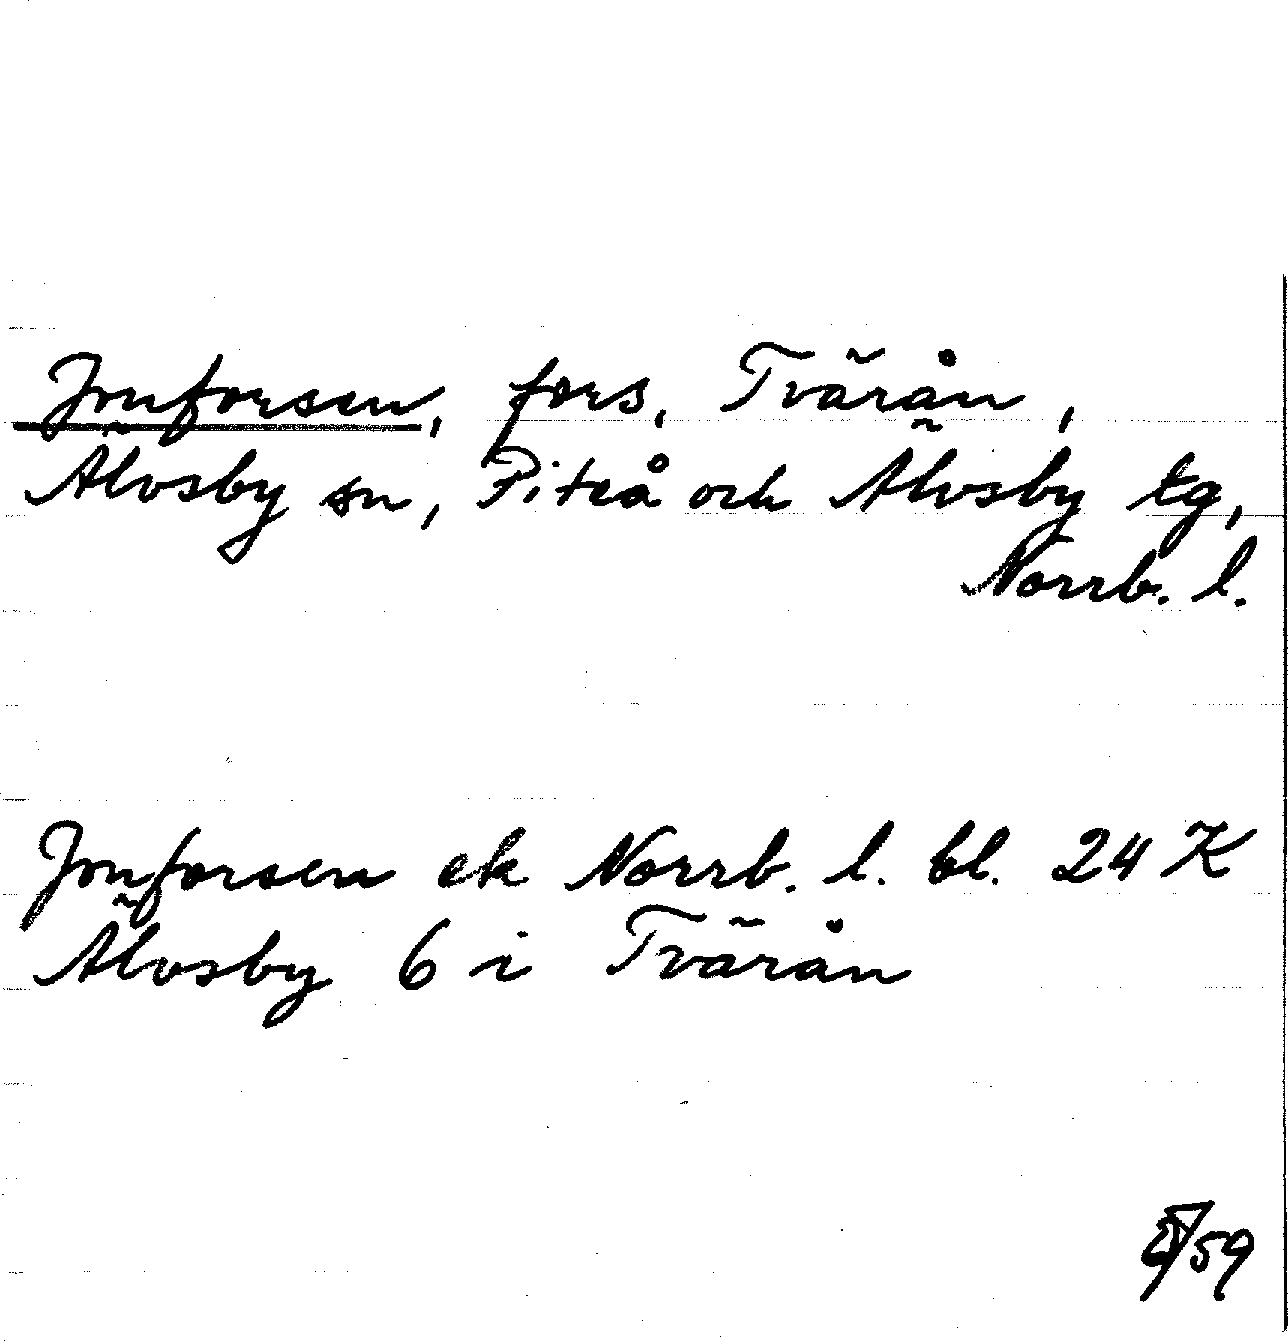 Jonforsen, fors, Tvärån,
Älvsby sn, Piteå och Älvsby tg,
Norrb. l.
Jonforsen ek Norrb. l. bl. 24 K
Älvsby 6 i Tvärån
/59